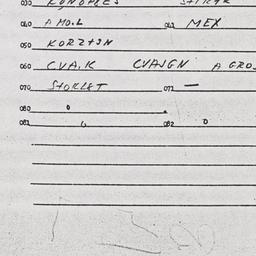 040 A MOL 041 MEX
050 KORZTSN
060 CVA.K CVAJGN A GRO
070 STORLET 071 —
080 0
081 0 082 0